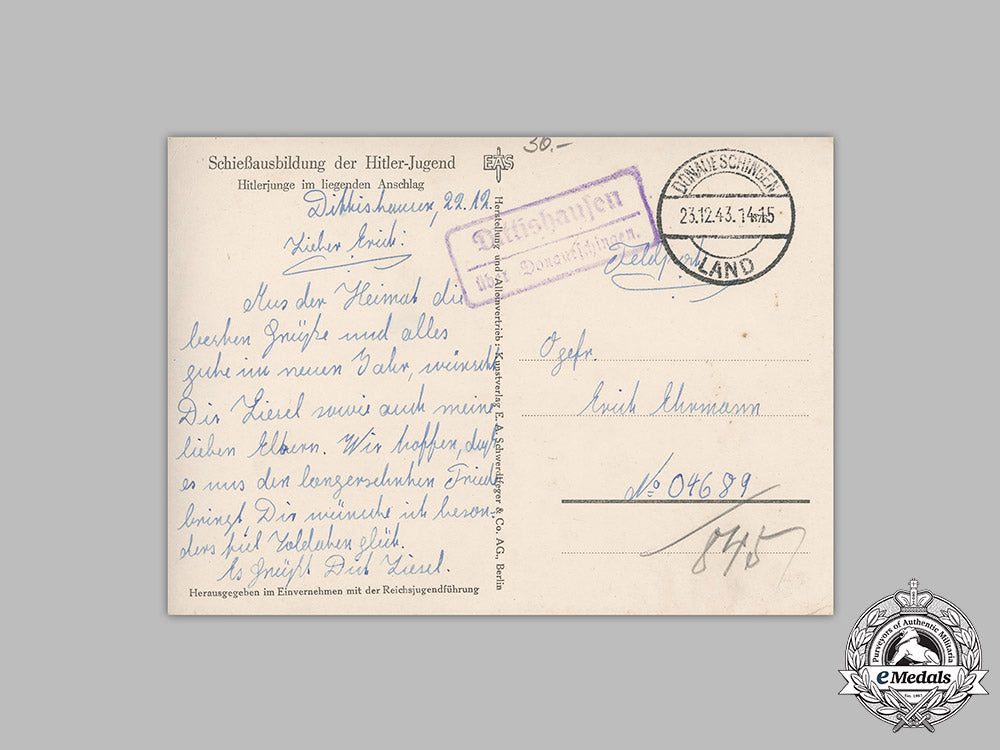 Schießausbildung der Hitler-Jugend
Hitlerjunge im liegenden Anschlag
EAS
50.-
Dittishausen, 22.12.
Lieber Erich!
Aus der Heimat die
besten Grüße und alles
gute im neuen Jahr, wünscht
Dir Liesel sowie auch meine
lieben Eltern. Wir hoffen, daß
es uns den langersehnten Friede
bringt, Dir wünsche ich beson-
ders viel Soldaten glück.
Es Grüßt Dich Liesel.
Herausgegeben im Einvernehmen mit der Reichsjugendführung
Herstellung und Alleinvertrieb: Kunstverlag E. A. Schwerdtfeger & Co. AG., Berlin
Dittishausen
über Donaueschingen.
DONAUESCHINGEN
23.12.43. 14-15
LAND
Feldpost
Ogefr.
Erich Ehrmann
No 04689
845
Purveyors of Authentic Militaria
eMedals